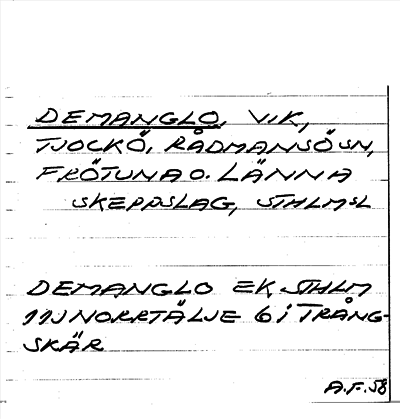 DEMANGLO, VIK,
TJOCKÖ, RÅDMANSÖ SN,
FRÖTUNA O. LÄNNA
SKEPPSLAG, STHLMSL
DEMANGLO EK. STHLM
11J NORRTÄLJE 6 i TRÅNG-
SKÄR
A.F. 58